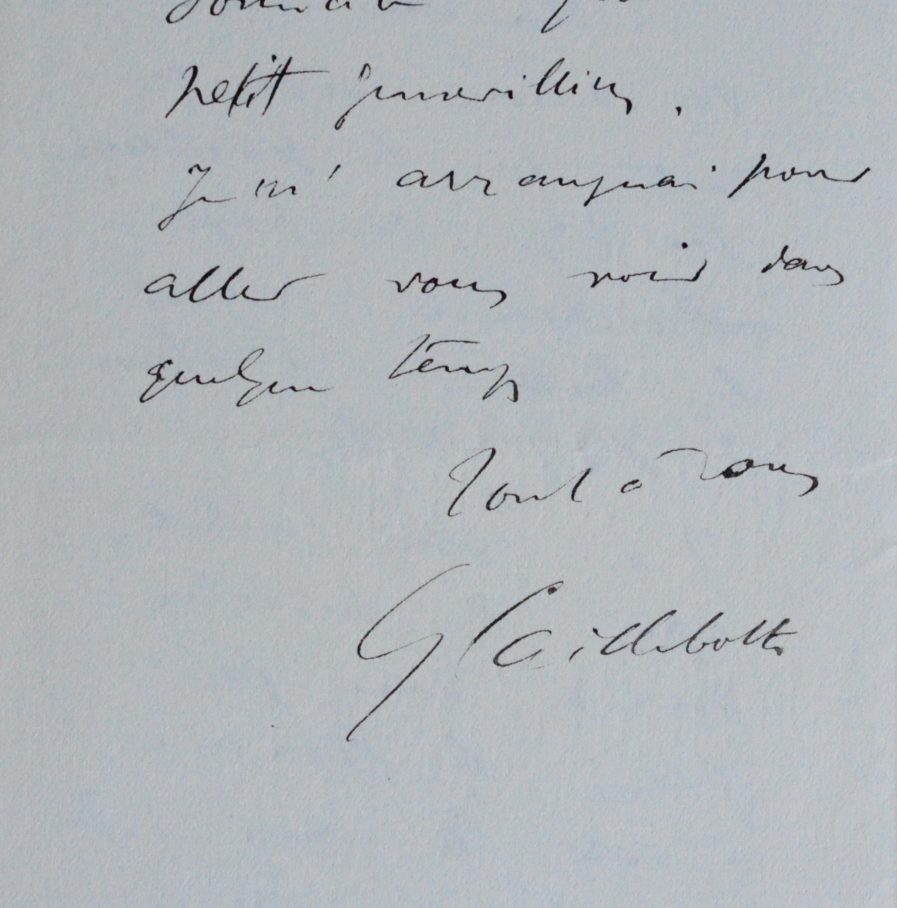 petit Gennevilliers.
Je m'arrangerai pour
aller vous voir dans
quelque temps
Tout à vous
G Caillebotte